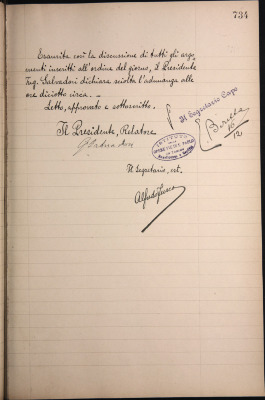 734
Esaurita così la discussione di tutti gli argo-
menti inseriti all'ordine del giorno, il Presidente
Ing. Salvadori dichiara sciolta l'adunanza alle
ore diciotto circa. —
Letto, approvato e sottoscritto.
Il Segretario Capo
Il Presidente, Relatore
GSalvadori
ISTITUTO
16
12
Il Segretario, est.